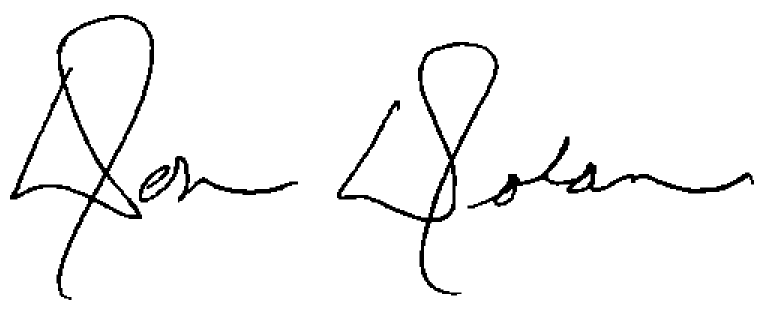 Don Dolan